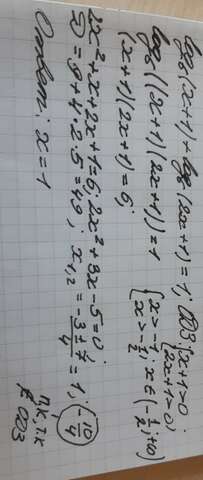 log₆(x+1) + log₆(2x+1) = 1; ОДЗ { x+1>0 2x+1>0
log₆((x+1)(2x+1)) = 1 { x>-1 x>-1/2; x∈(-1/2; +∞)
(x+1)(2x+1) = 6;
2x²+x+2x+1=6; 2x²+3x-5=0;
D = 9+4·2·5=49; x₁,₂ = (-3±7)/4 = 1; -10/4
п.к., т.к ∉ ОДЗ
Ответ: x=1